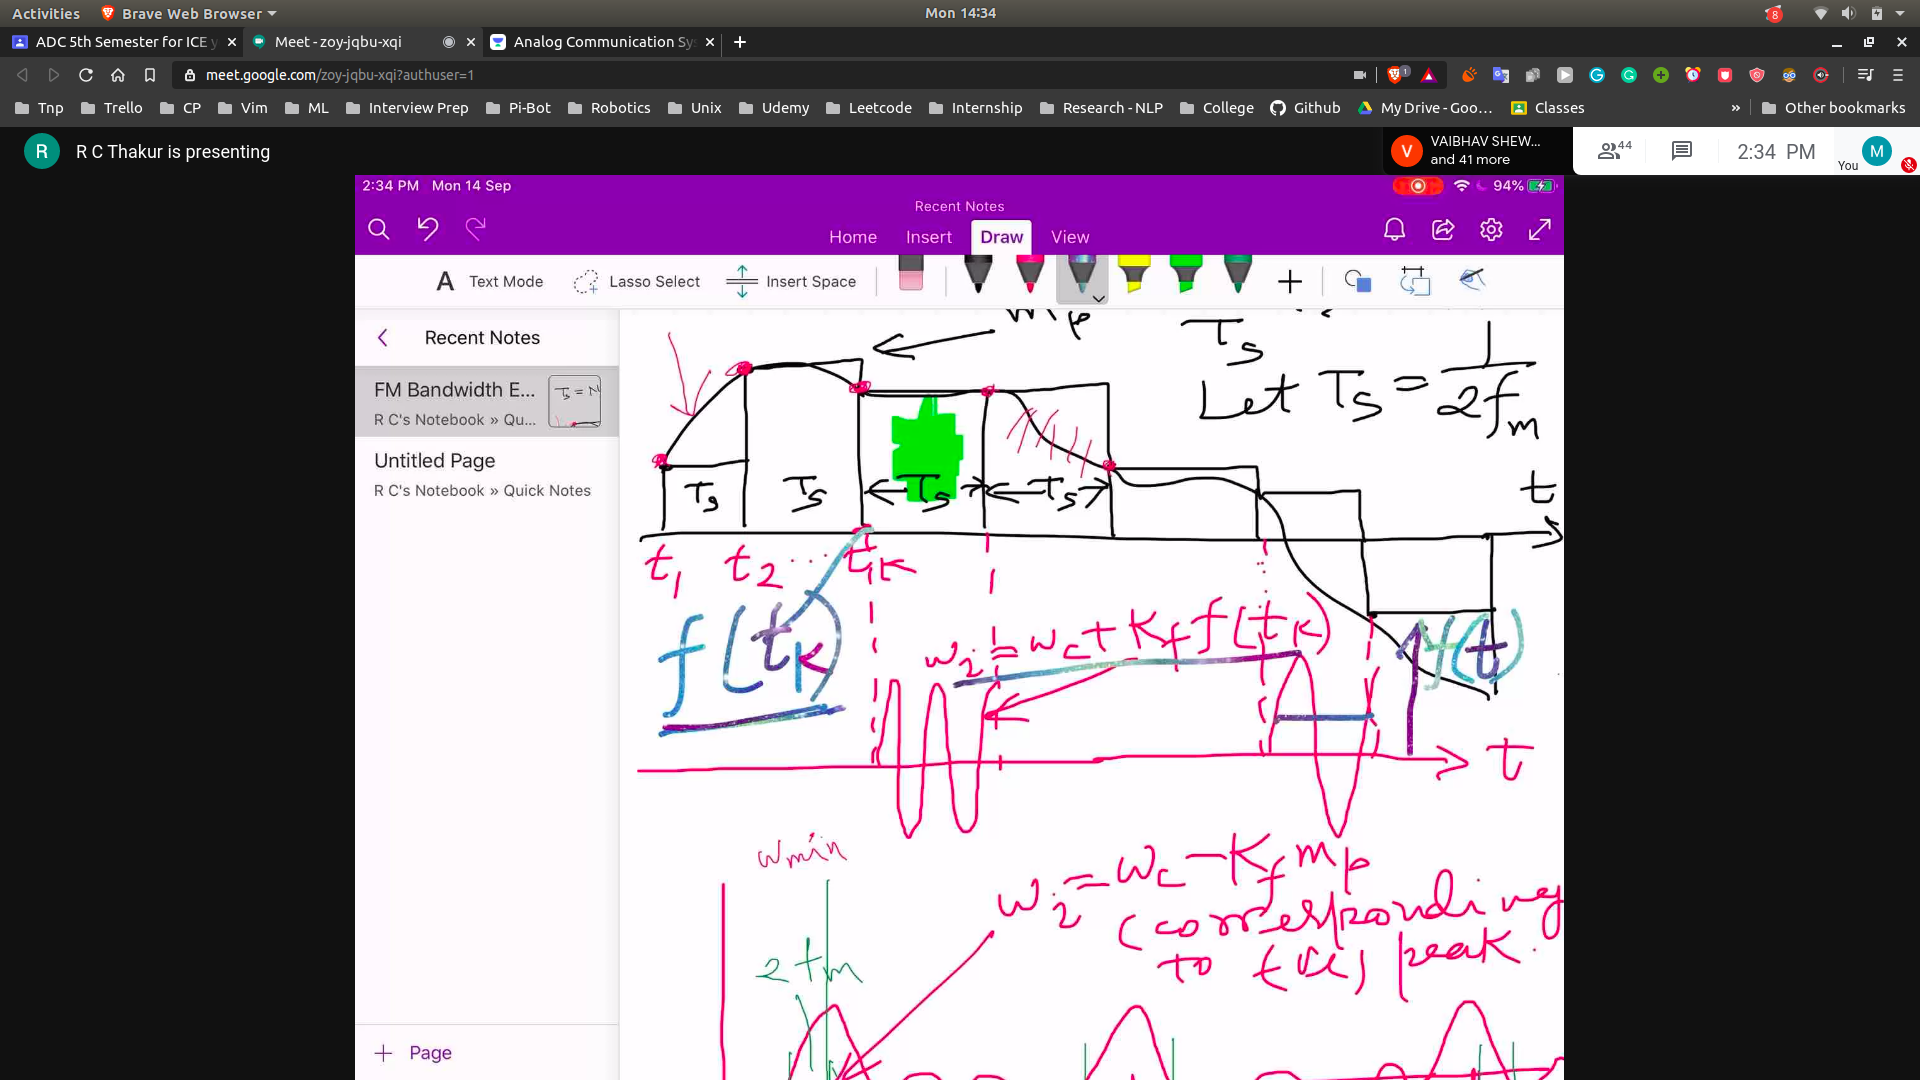 Activities Brave Web Browser Mon 14:34 8
ADC 5th Semester for ICE y Meet - zoy-jqbu-xqi Analog Communication Sy
meet.google.com/zoy-jqbu-xqi?authuser=1 1
Tnp Trello CP Vim ML Interview Prep Pi-Bot Robotics Unix Udemy Leetcode Internship Research - NLP College Github My Drive - Goo... Classes » Other bookmarks
R R C Thakur is presenting V VAIBHAV SHEW... and 41 more 44 2:34 PM You M
2:34 PM Mon 14 Sep 94%
Recent Notes
Home Insert Draw View
A Text Mode Lasso Select Insert Space
Recent Notes
FM Bandwidth E...
R C's Notebook » Qu...
Untitled Page
R C's Notebook » Quick Notes
+ Page
mp
Ts
Let Ts = 1/2fm
Ts Ts Ts Ts t
t1 t2 ... tk
f(tk)
wi = wc + Kf f(tk)
f(t)
t
wmin
wi = wc - Kf mp
(corresponding
to (-ve) peak.
2fm